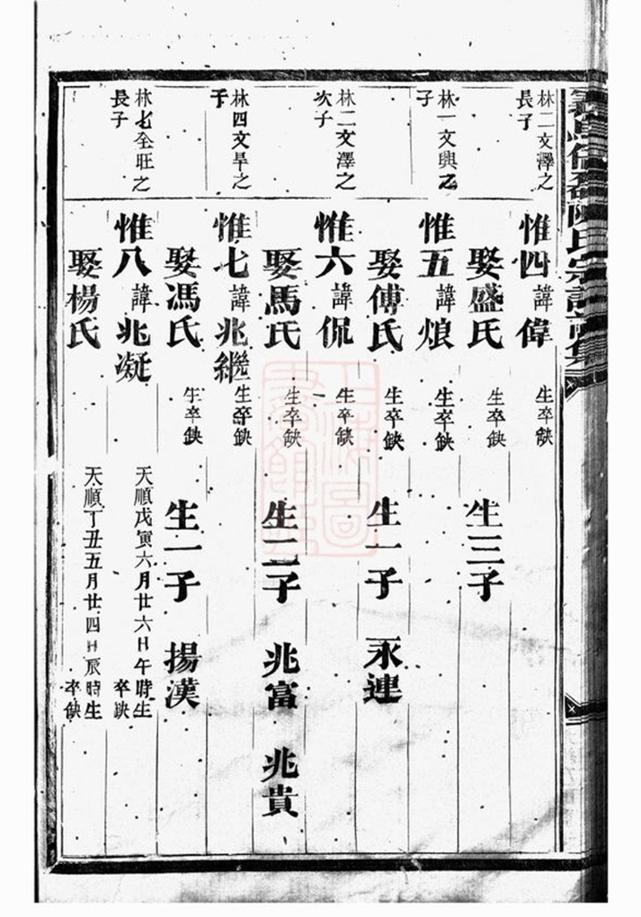 林二文澤之
長子
惟四 諱偉 生卒缺
娶盛氏 生卒缺 生三子
林一文興之
子
惟五 諱烺 生卒缺
娶傅氏 生卒缺 生一子 永連
林二文澤之
次子
惟六 諱侃 生卒缺
娶馬氏 生二子 兆富 兆貴
林四文旱之
子
惟七 諱兆繼 生卒缺
娶馮氏 生卒缺 生一子 揚漢
林七全旺之
長子
惟八 諱兆凝 天順戊寅六月廿六日午時生
卒缺
娶楊氏 天順丁丑五月廿四日辰時生
卒缺